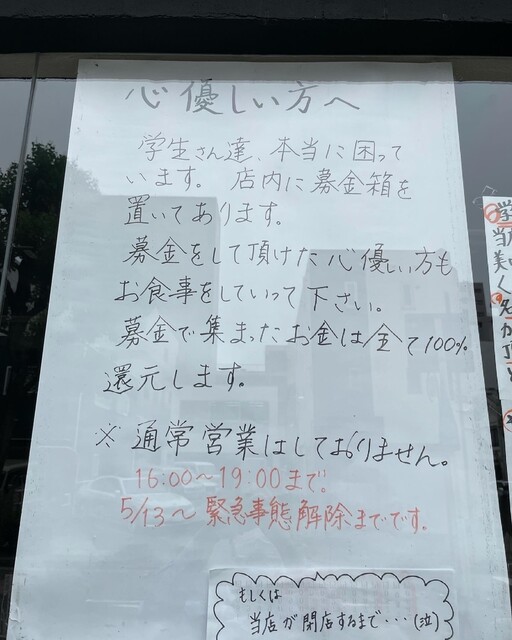 心優しい方へ
学生さん達、本当に困って
います。店内に募金箱を
置いてあります。
募金をして頂けた心優しい方も
お食事をしていって下さい。
募金で集まったお金は全て100%
還元します。
※通常営業はしておりません。
16:00〜19:00まで。
5/13〜緊急事態解除までです。
もしくは
当店が閉店するまで・・・(泣)